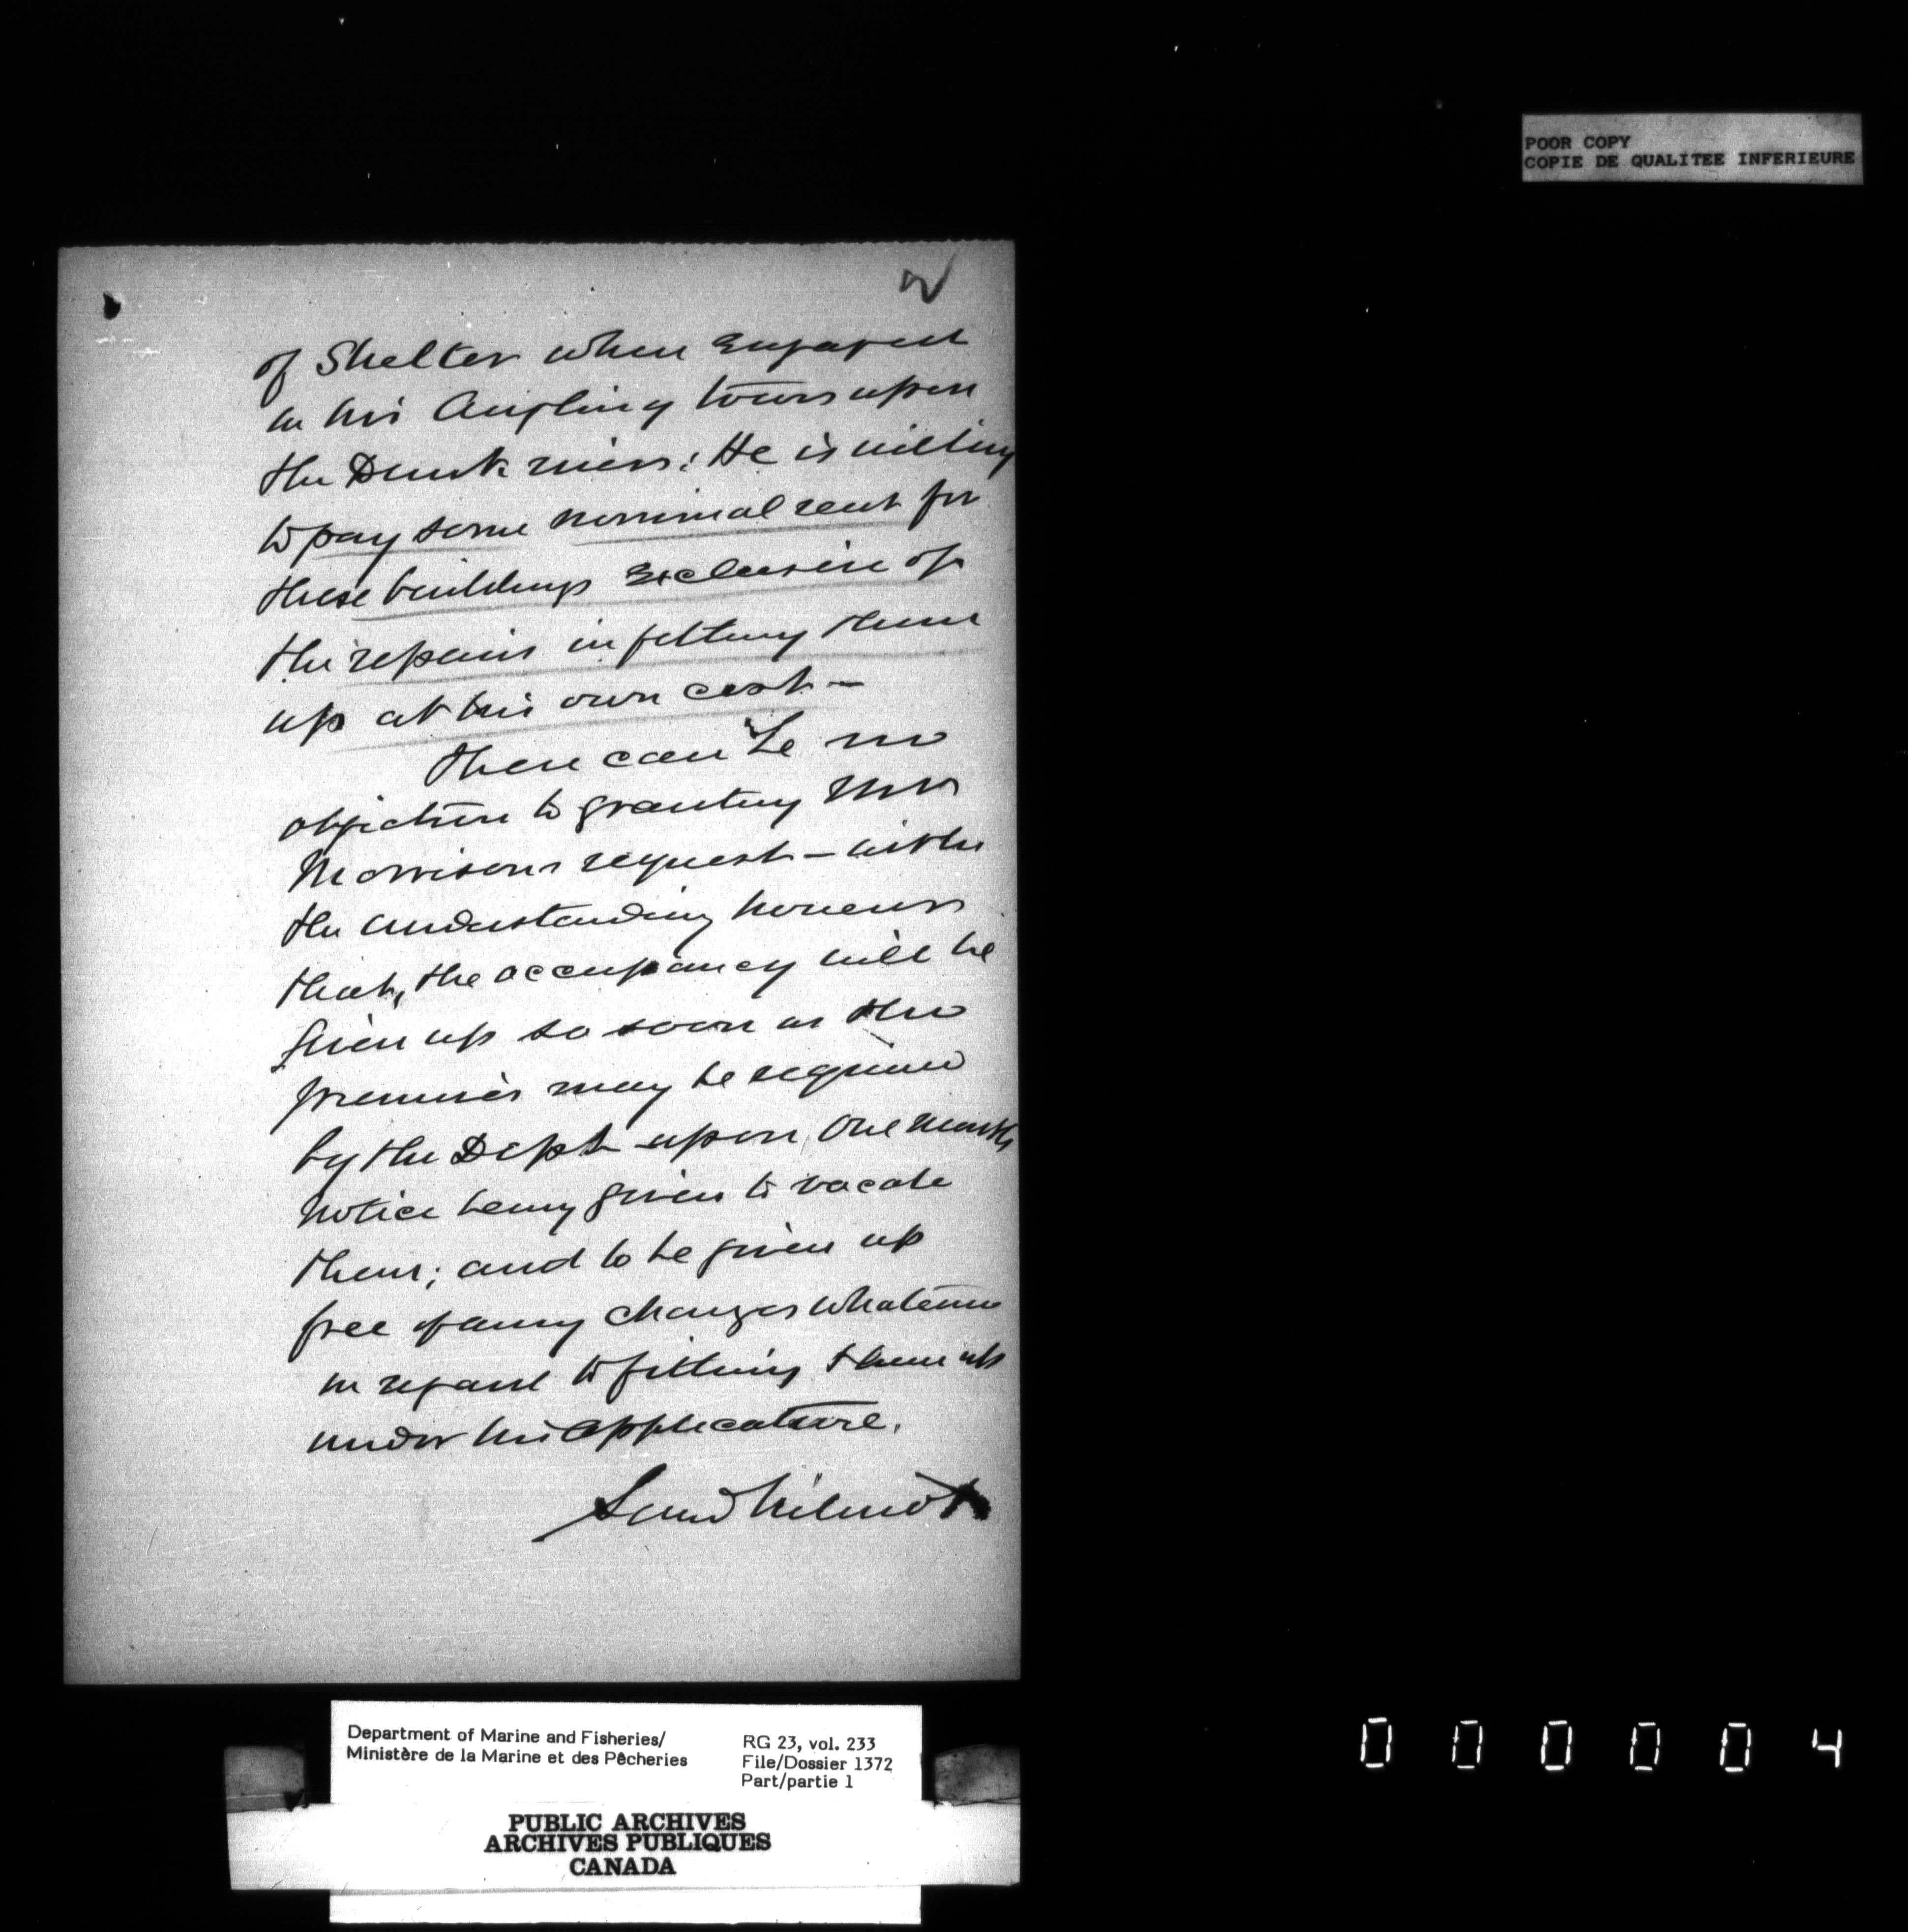 POOR COPY
COPIE DE QUALITEE INFERIEURE
2
of Shelter when Engaged
in his Angling tours upon
the Dunk river: He is willing
to pay some nominal rent for
these buildings Exclusive of
the repairs in fitting them
up at his own cost —
There can be no
objection to granting Mr
Morrisons request — with
the understanding however
that, the occupancy will be
given up so soon as the
premises may be required
by the Dept upon one months
notice being given to vacate
them; and to be given up
free of any charges whatever
in regard to fitting them up
under his application.
Saml Wilmot
Department of Marine and Fisheries/
Ministère de la Marine et des Pêcheries
RG 23, vol. 233
File/Dossier 1372
Part/partie 1
PUBLIC ARCHIVES
ARCHIVES PUBLIQUES
CANADA
0 0 0 0 0 4